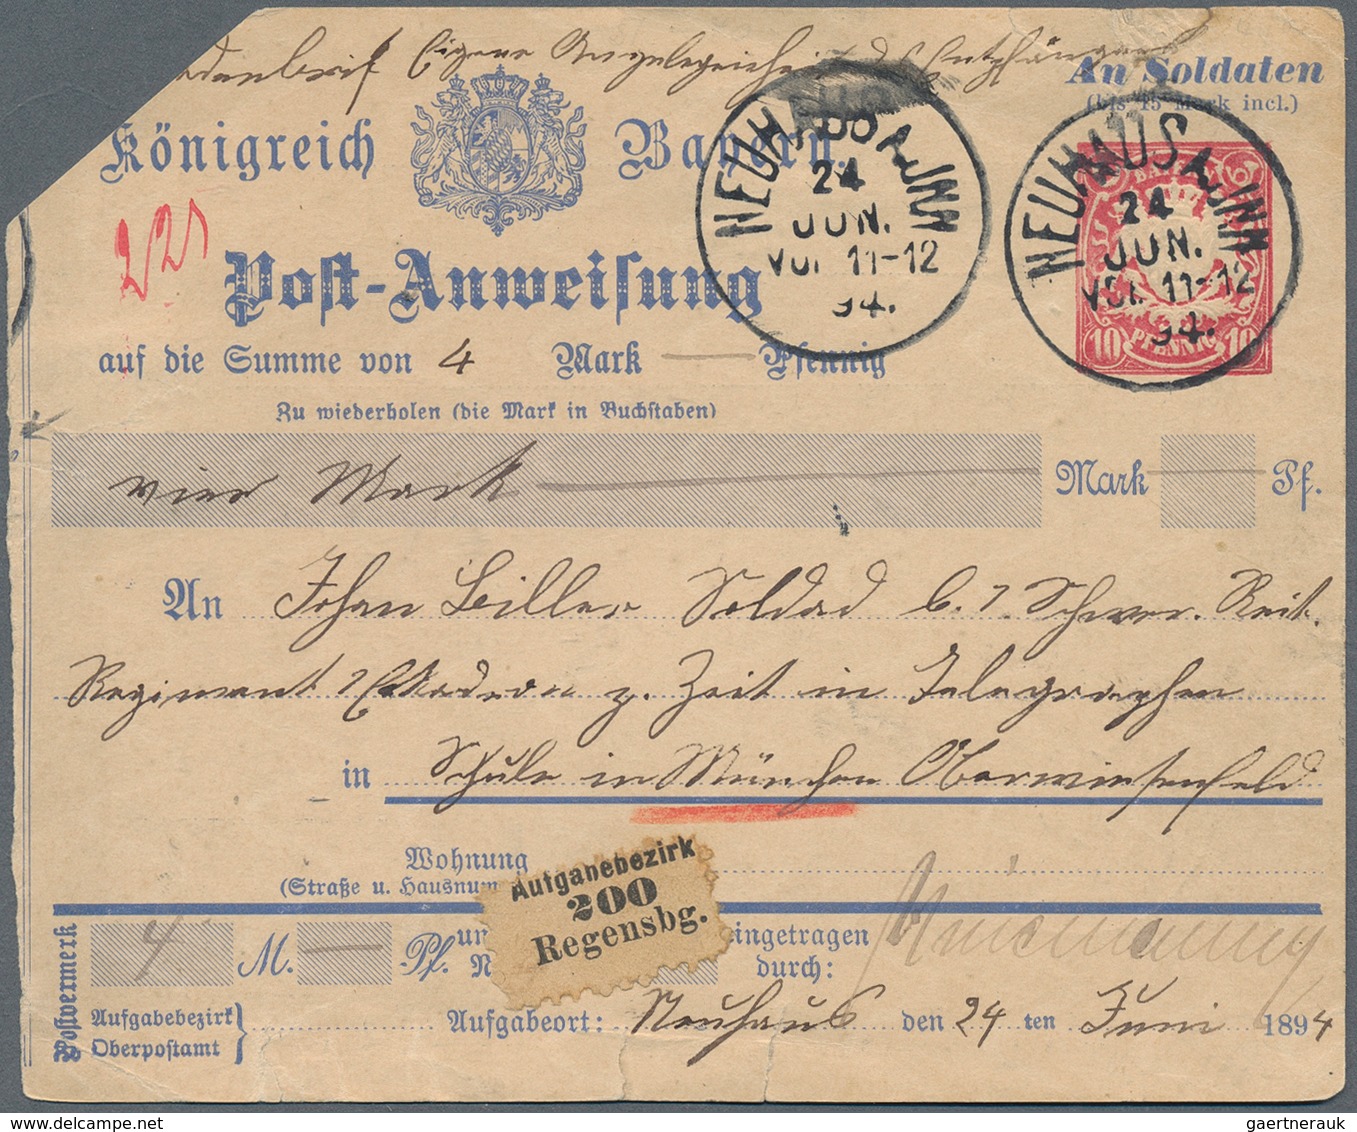 Soldatenbrief Eigene Angelegenheit des Empfängers
An Soldaten
(bis 15 Mark incl.)
Königreich Bayern.
NEUHAUS A. INN
24
JUN.
VOR. 11-12
94.
NEUHAUS A. INN
24
JUN.
VOR. 11-12
94.
BAYERN
10 PFENNIG 10
221
Post-Anweisung
auf die Summe von 4 Mark — Pfennig
Zu wiederholen (die Mark in Buchstaben)
vier Mark — Mark — Pf.
An Johan Biller Soldad b. 1 Schwer. Reit.
Regiment Eskadron z. Zeit in Telegraphen
in Schule in München Oberwiesenfeld
Wohnung
(Straße u. Hausnum
Aufgabebezirk
200
Regensbg.
Postvermerk
4 M. — Pf. un
N
eingetragen
durch:
Aufgabebezirk
Oberpostamt
Aufgabeort: Neuhaus den 24 ten Juni 1894
gaertnerauk